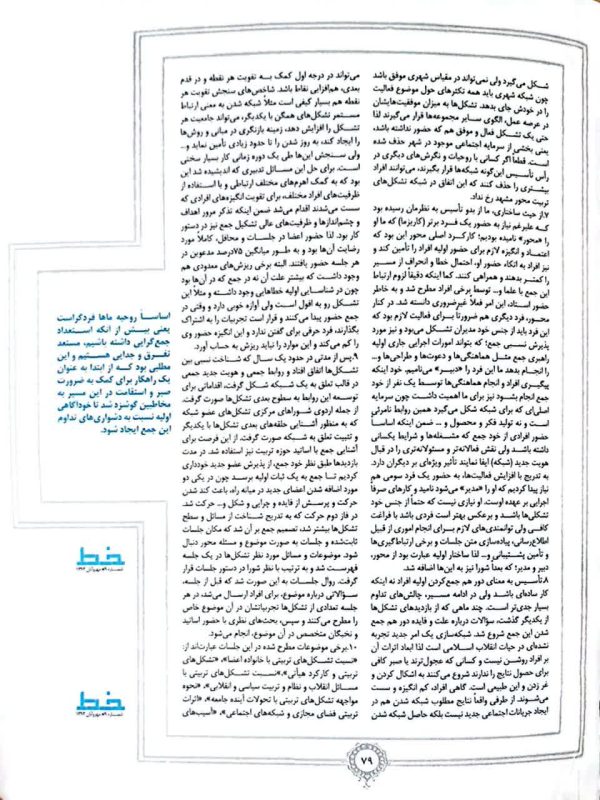 شکل می‌گیرد ولی نمی‌تواند در مقیاس شهری موفق باشد
چون شبکه شهری باید همه تکثرهای حول موضوع فعالیت
را در خودش جای بدهد. تشکل‌ها به میزان موفقیت‌هایشان
در عرصه عمل، الگوی سایر مجموعه‌ها قرار می‌گیرند لذا
حتی یک تشکل فعال و موفق هم که حضور نداشته باشد،
یعنی بخشی از سرمایه اجتماعی موجود در شهر حذف شده
است. قطعاً اگر کسانی با روحیات و نگرش‌های دیگری در
رأس تأسیس این‌گونه شبکه‌ها قرار بگیرند، می‌توانند افراد
بیشتری را حذف کنند که این اتفاق در شبکه تشکل‌های
تربیت محور مشهد رخ نداد.
۷.از حیث ساختاری، ما از بدو تأسیس به نظرمان رسیده بود
که علیرغم نیاز به حضور یک فرد برتر (کاریزما) که ما او
را «محور» نامیده بودیم؛ کارکرد اصلی محور این بود که
اعتماد و انگیزه لازم برای حضور اولیه افراد را تأمین کند و
نیز افراد به اتکاء حضور او، احتمال خطا و انحراف از مسیر
را کمتر بدهند و همراهی کنند. کما اینکه دقیقاً لزوم ارتباط
این جمع با علما و... توسط برخی افراد مطرح شد و به خاطر
حضور استاد، این امر فعلاً غیرضروری دانسته شد. در کنار
محور، فرد دیگری هم ضرورتاً برای فعالیت لازم بود که
این فرد باید از جنس خود مدیران تشکل می‌بود و نیز مورد
پذیرش نسبی جمع؛ که بتواند امورات اجرایی جاری اولیه
راهبری جمع مثل هماهنگی‌ها و دعوت‌ها و طراحی‌ها و...
را انجام بدهد ما این فرد را «دبیر» می‌نامیم. خود اینکه
پیگیری افراد و انجام هماهنگی‌ها توسط یک نفر از خود
جمع انجام بشود نیز برای ما اهمیت داشت چون سرمایه
اصلی‌ای که برای شبکه شکل می‌گیرد همین روابط نامرئی
است و نه تولید فکر و محصول و ... ضمن اینکه اساسا
حضور افرادی از خود جمع که مشغله‌ها و شرایط یکسانی
داشته باشد ولی نقش فعالانه‌تر و مسئولانه‌تری را در قبال
هویت جدید (شبکه) ایفا نمایند تأثیر ویژه‌ای بر دیگران دارد.
به تدریج با افزایش فعالیت‌ها، به حضور یک فرد سومی هم
نیاز پیدا کردیم که او را «مدیر» می‌شود نامید و کارهای صرفاً
اجرایی بر عهده اوست. او نیازی نیست که حتماً از جنس خود
تشکل‌ها باشد و برعکس بهتر است فردی باشد با فراغت
کافی ولی توانمندی‌های لازم برای انجام اموری از قبیل
اطلاع‌رسانی، پیاده‌سازی متن جلسات و برخی ارتباط‌گیری‌ها
و تأمین پشتیبانی و... لذا ساختار اولیه عبارت بود از محور،
دبیر و مدیر؛ که بعداً شورا نیز به این‌ها اضافه شد.
۸.تأسیس به معنای دور هم جمع‌کردن اولیه افراد نه اینکه
کار ساده‌ای باشد ولی در ادامه مسیر، چالش‌های تداوم
بسیار جدی‌تر است. چند ماهی که از بازدیدهای تشکل‌ها
از یکدیگر گذشت، سؤالات درباره علت و فایده دور هم جمع
شدن این جمع شروع شد. شبکه‌سازی یک امر جدید تجربه
نشده‌ای در حیات انقلاب اسلامی است لذا ابعاد اثرات آن
بر افراد روشن نیست و کسانی که عجول‌ترند یا صبر کافی
برای حصول نتایج را ندارند شروع می‌کنند به اشکال کردن و
غر زدن و این طبیعی است. گاهی افراد، کم انگیزه و سست
می‌شوند. از طرفی واقعاً نتایج مطلوب شبکه شدن هم در
ایجاد جریانات اجتماعی جدید نیست بلکه حاصل شبکه شدن
می‌تواند در درجه اول کمک به تقویت هر نقطه و در قدم
بعدی، هم‌افزایی نقاط باشد. شاخص‌های سنجش تقویت هر
نقطه هم بسیار کیفی است مثلاً شبکه شدن به معنی ارتباط
مستمر تشکل‌های همگن با یکدیگر، می‌تواند جامعیت هر
تشکل را افزایش دهد، زمینه بازنگری در مبانی و روش‌ها
را ایجاد کند، به روز شدن را تا حدود زیادی تأمین نماید و...
ولی سنجش این‌ها طی یک دوره زمانی کار بسیار سختی
است. برای حل این مسائل تدبیری که اندیشیده شد این
بود که به کمک اهرم‌های مختلف ارتباطی و با استفاده از
ظرفیت‌های افراد مختلف، برای تقویت انگیزه‌های افرادی که
سست می‌شدند اقدام می‌شد ضمن اینکه تذکر مرور اهداف
و چشم‌اندازها و ظرفیت‌های عالی تشکیل جمع نیز در دستور
کار بود. لذا حضور اعضا در جلسات و محافل، کاملاً مورد
رضایت آن‌ها بود و به طور میانگین ۷۵درصد مدعوین در
هر جلسه حضور یافتند. البته برخی ریزش‌های معدودی هم
وجود داشت که بیشتر علت آن نه در جمع که در آن‌ها بود
چون در شناسایی اولیه خطاهایی وجود داشته و مثلاً این
تشکل رو به افول است ولی آوازه خوبی دارد و وقتی در
جمع حضور پیدا می‌کنند و قرار است تجربیات را به اشتراک
بگذارند، فرد حرفی برای گفتن ندارد و این انگیزه حضور وی
را کم می‌کند و این موارد را نباید ریزش به حساب آورد.
۹.پس از مدتی در حدود یک سال که شناخت نسبی بین
تشکل‌ها اتفاق افتاد و روابط جمعی و هویت جدید جمعی
در قالب تعلق به یک شبکه شکل گرفت، اقداماتی برای
توسعه این روابط به سطوح بعدی تشکل‌ها صورت گرفت.
از جمله اردوی شوراهای مرکزی تشکل‌های عضو شبکه
که به منظور آشنایی حلقه‌های بعدی تشکل‌ها با یکدیگر
و تثبیت تعلق به شبکه صورت گرفت. از این فرصت برای
آشنایی جمع با اساتید حوزه تربیت نیز استفاده شد. در مدت
بازدیدها طبق نظر خود جمع، از پذیرش عضو جدید خودداری
کردیم تا جمع به یک ثبات اولیه برسد چون در یکی دو
مورد اضافه شدن اعضای جدید در میانه راه، باعث کند شدن
حرکت و پرسش از فایده و چرایی و شکل و... حرکت شد.
در فاز دوم حرکت که به تدریج شناخت از مسائل و سطح
تشکل‌ها بیشتر شد، تصمیم جمع بر آن شد که مکان جلسات
ثابت‌شده و جلسات به صورت موضوع و مسئله محور دنبال
شود. موضوعات و مسائل مورد نظر تشکل‌ها در یک جلسه
فهرست شد و به ترتیب با نظر شورا در دستور جلسات قرار
گرفت. روال جلسات به این صورت شد که قبل از جلسه،
سؤالاتی درباره موضوع، برای افراد ارسال می‌شد، در هر
جلسه تعدادی از تشکل‌ها تجربیاتشان در آن موضوع خاص
را مطرح می‌کنند و سپس، بحث‌های نظری با حضور اساتید
و نخبگان متخصص در آن موضوع، انجام می‌شود.
۱۰.برخی موضوعات مطرح شده در این جلسات عبارت‌اند از:
«نسبت تشکل‌های تربیتی با خانواده اعضا»، «تشکل‌های
تربیتی و کارکرد هیأتی»، «نسبت تشکل‌های تربیتی با
مسائل انقلاب و نظام و تربیت سیاسی و انقلابی»، «نحوه
مواجهه تشکل‌های تربیتی با تحولات آینده جامعه»، «اثرات
تربیتی فضای مجازی و شبکه‌های اجتماعی»، «آسیب‌های
اساساً روحیه ماها فردگراست
یعنی بیش از آنکه استعداد
جمع‌گرایی داشته باشیم، مستعد
تفرق و جدایی هستیم و این
مطلبی بود که از ابتدا به عنوان
یک راهکار برای کمک به ضرورت
صبر و استقامت در این مسیر به
مخاطبین گوشزد شد تا خودآگاهی
اولیه نسبت به دشواری‌های تداوم
این جمع ایجاد شود.
خط
خط
۷۹